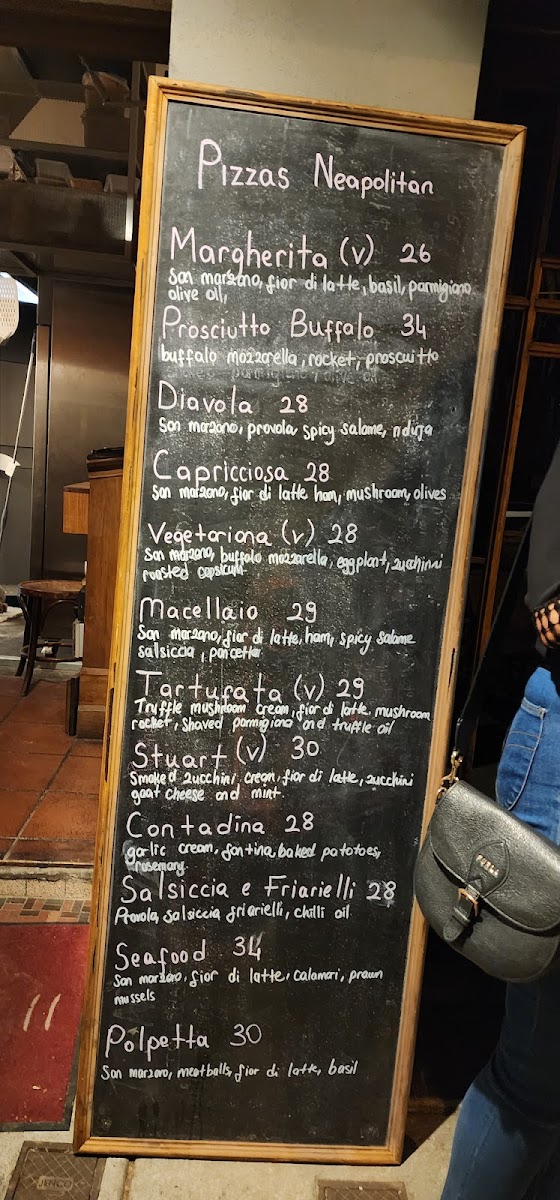 Pizzas Neapolitan
Margherita (v) 26
San marzano, fior di latte, basil, parmigiano
olive oil,
Prosciutto Buffalo 34
buffalo mozzarella, rocket, proscuitto
parmigiano, olive oil
Diavola 28
San marzano, provola, spicy salame, nduja
Capricciosa 28
San marzano, fior di latte ham, mushroom, olives
Vegetariana (v) 28
San marzano, buffalo mozzarella, eggplant, zucchini
roasted capsicum
Macellaio 29
San marzano, fior di latte, ham, spicy salame
salsiccia, pancetta
Tartufata (v) 29
Truffle mushroom cream, fior di latte, mushroom
rocket, shaved parmigiano and truffle oil
Stuart (v) 30
Smoked zucchini cream, fior di latte, zucchini
goat cheese and mint
Contadina 28
garlic cream, fontina, baked potatoes,
rosemary
Salsiccia e Friarielli 28
Provola, salsiccia, friarielli, chilli oil
Seafood 34
San marzano, fior di latte, calamari, prawn
mussels
Polpetta 30
San marzano, meatballs, fior di latte, basil
JENCO